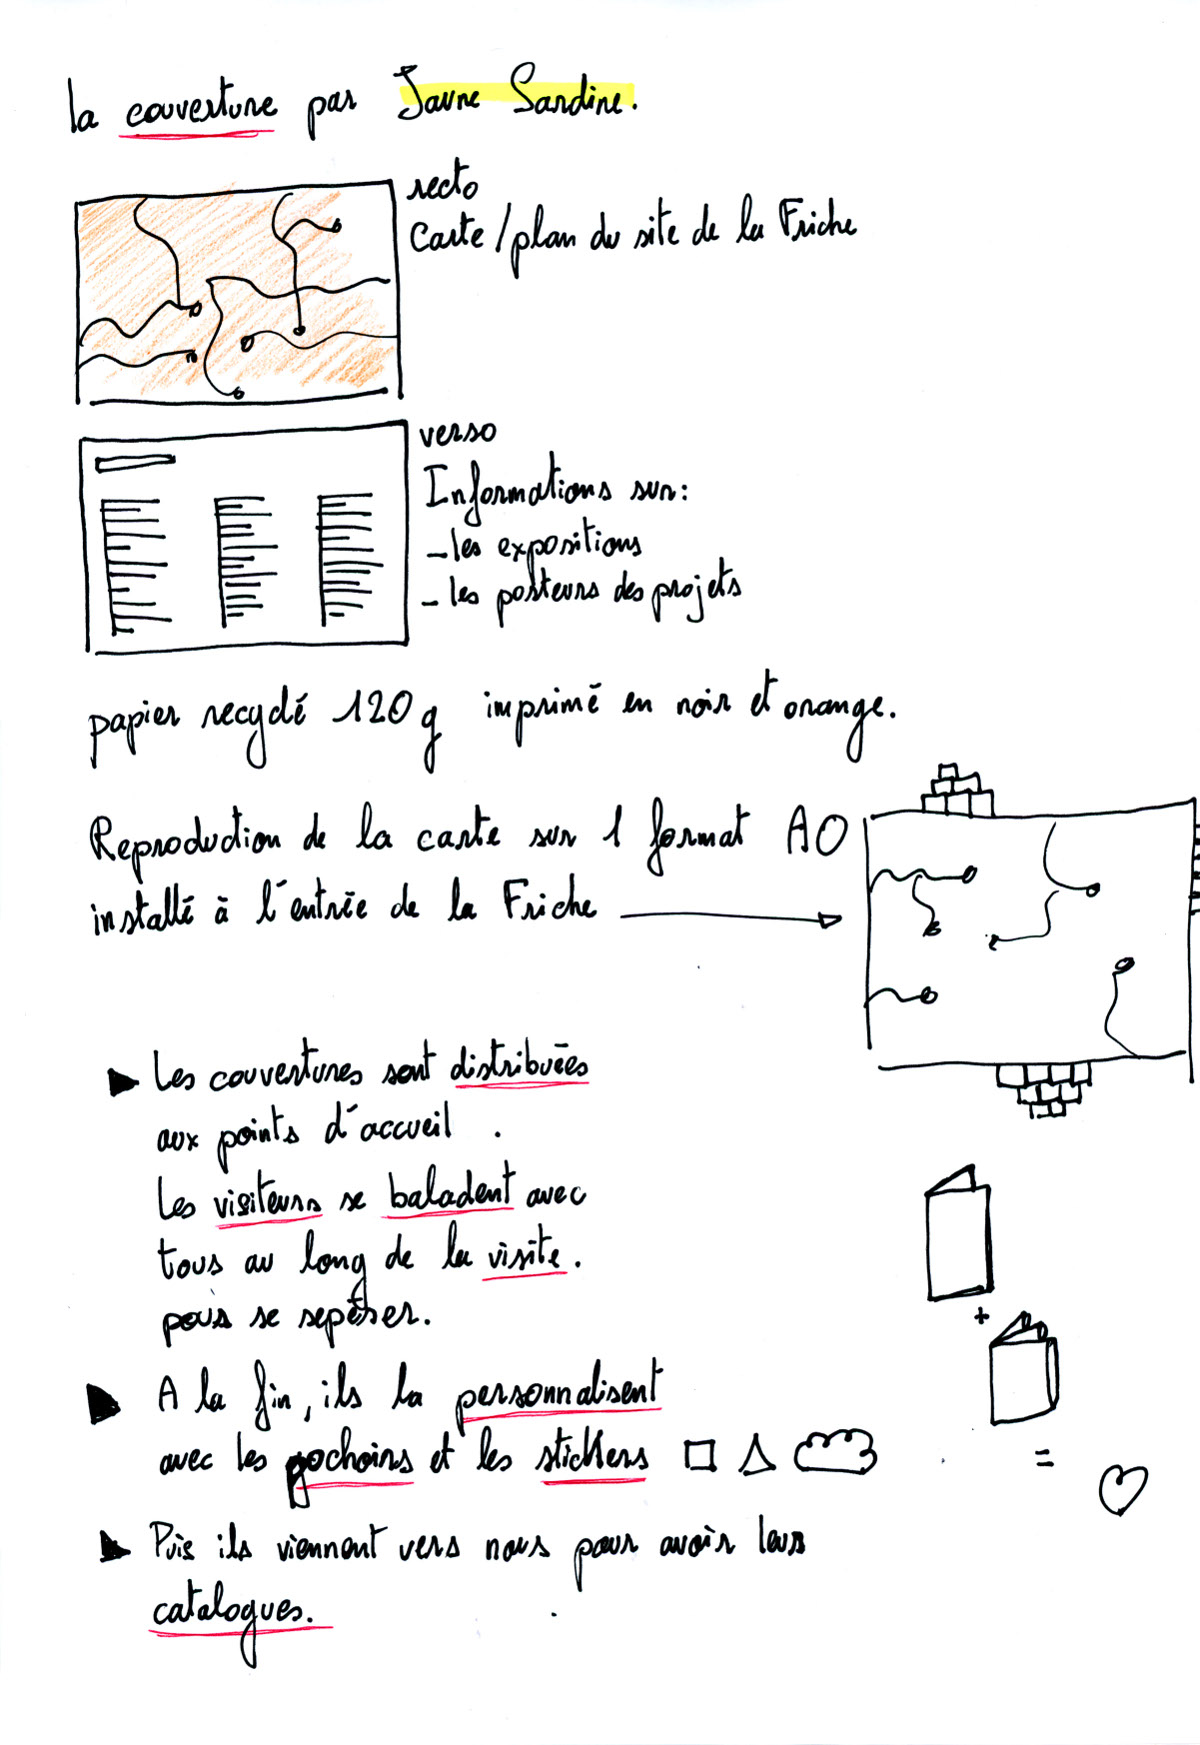 la couverture par Jaune Sardine.
recto
Carte/plan du site de la Friche
verso
Informations sur:
- les expositions
- les porteurs des projets
papier recyclé 120g imprimé en noir et orange.
Reproduction de la carte sur 1 format A0
installé à l'entrée de la Friche
Les couvertures sont distribuées
aux points d'accueil.
Les visiteurs se baladent avec
tous au long de la visite.
pour se repérer.
A la fin, ils la personnalisent
avec les pochoirs et les stickers
+
=
Puis ils viennent vers nous pour avoir leurs
catalogues.